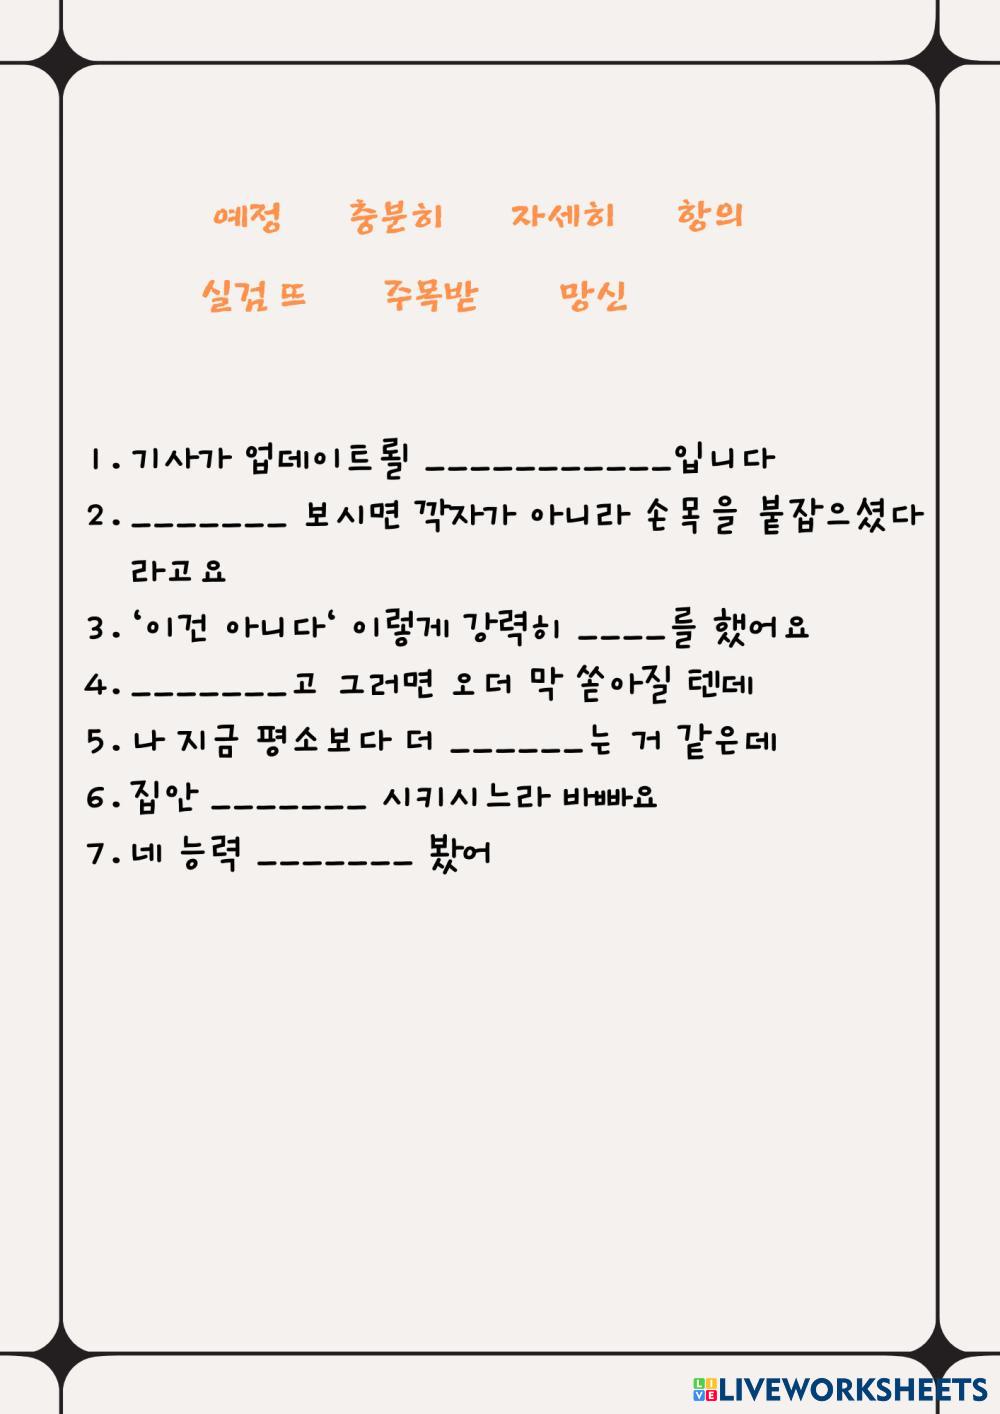 예정 충분히 자세히 항의
실검 뜨 주목받 망신
1. 기사가 업데이트뢸 ___________입니다
2. _______ 보시면 깍자가 아니라 손목을 붙잡으셨다
라고요
3. ‘이건 아니다‘ 이렇게 강력히 ____를 했어요
4. _______고 그러면 오더 막 쏟아질 텐데
5. 나 지금 평소보다 더 ______는 거 같은데
6. 집안 _______ 시키시느라 바빠요
7. 네 능력 _______ 봤어
LIVEWORKSHEETS